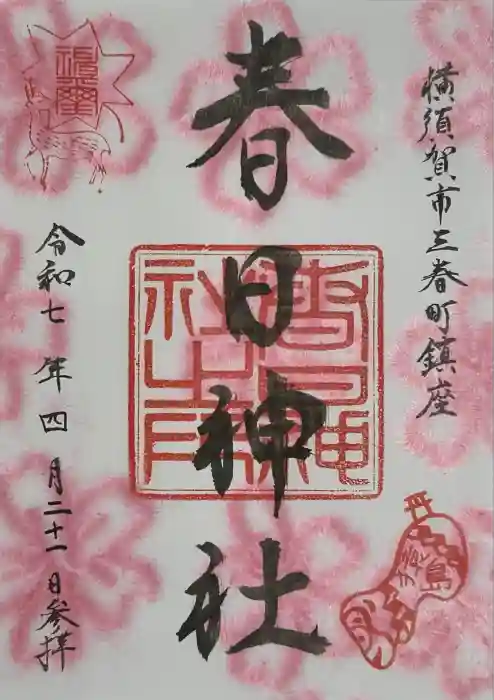 横須賀市三春町鎮座
春日神社
令和七年四月二十一日参拝
猿島